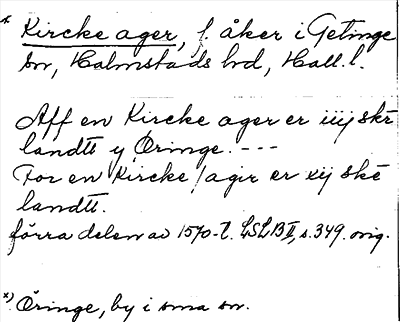 *. Kircke ager, f. åker i Getinge
sn, Halmstads hd, Hall. l.
Aff en Kircke ager er iiij skē
landtt y Øringe. ---
For en Kircke/agir er xij skē
landtt.
förra delen av 1570-t. LSLB II, s. 349. orig.
x) Öringe, by i sma sn.